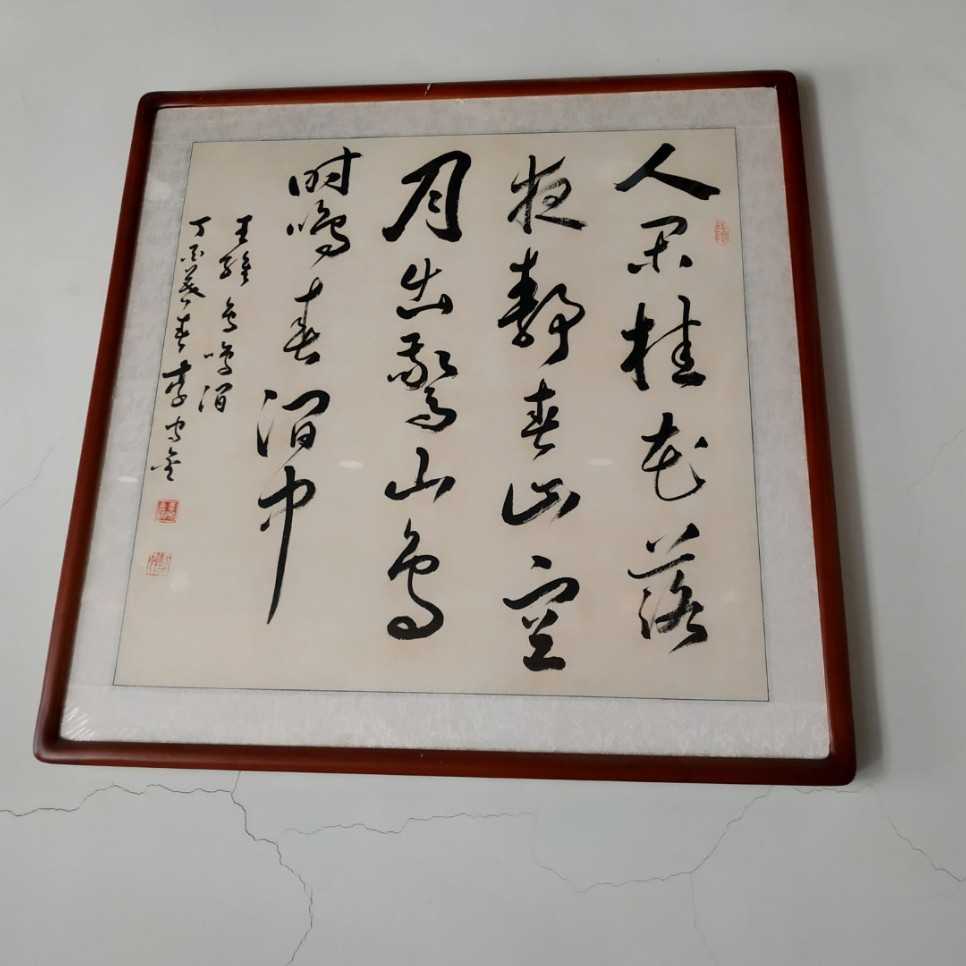 人闲桂花落
夜静春山空
月出惊山鸟
时鸣春涧中
王维鸟鸣涧
丁酉春李